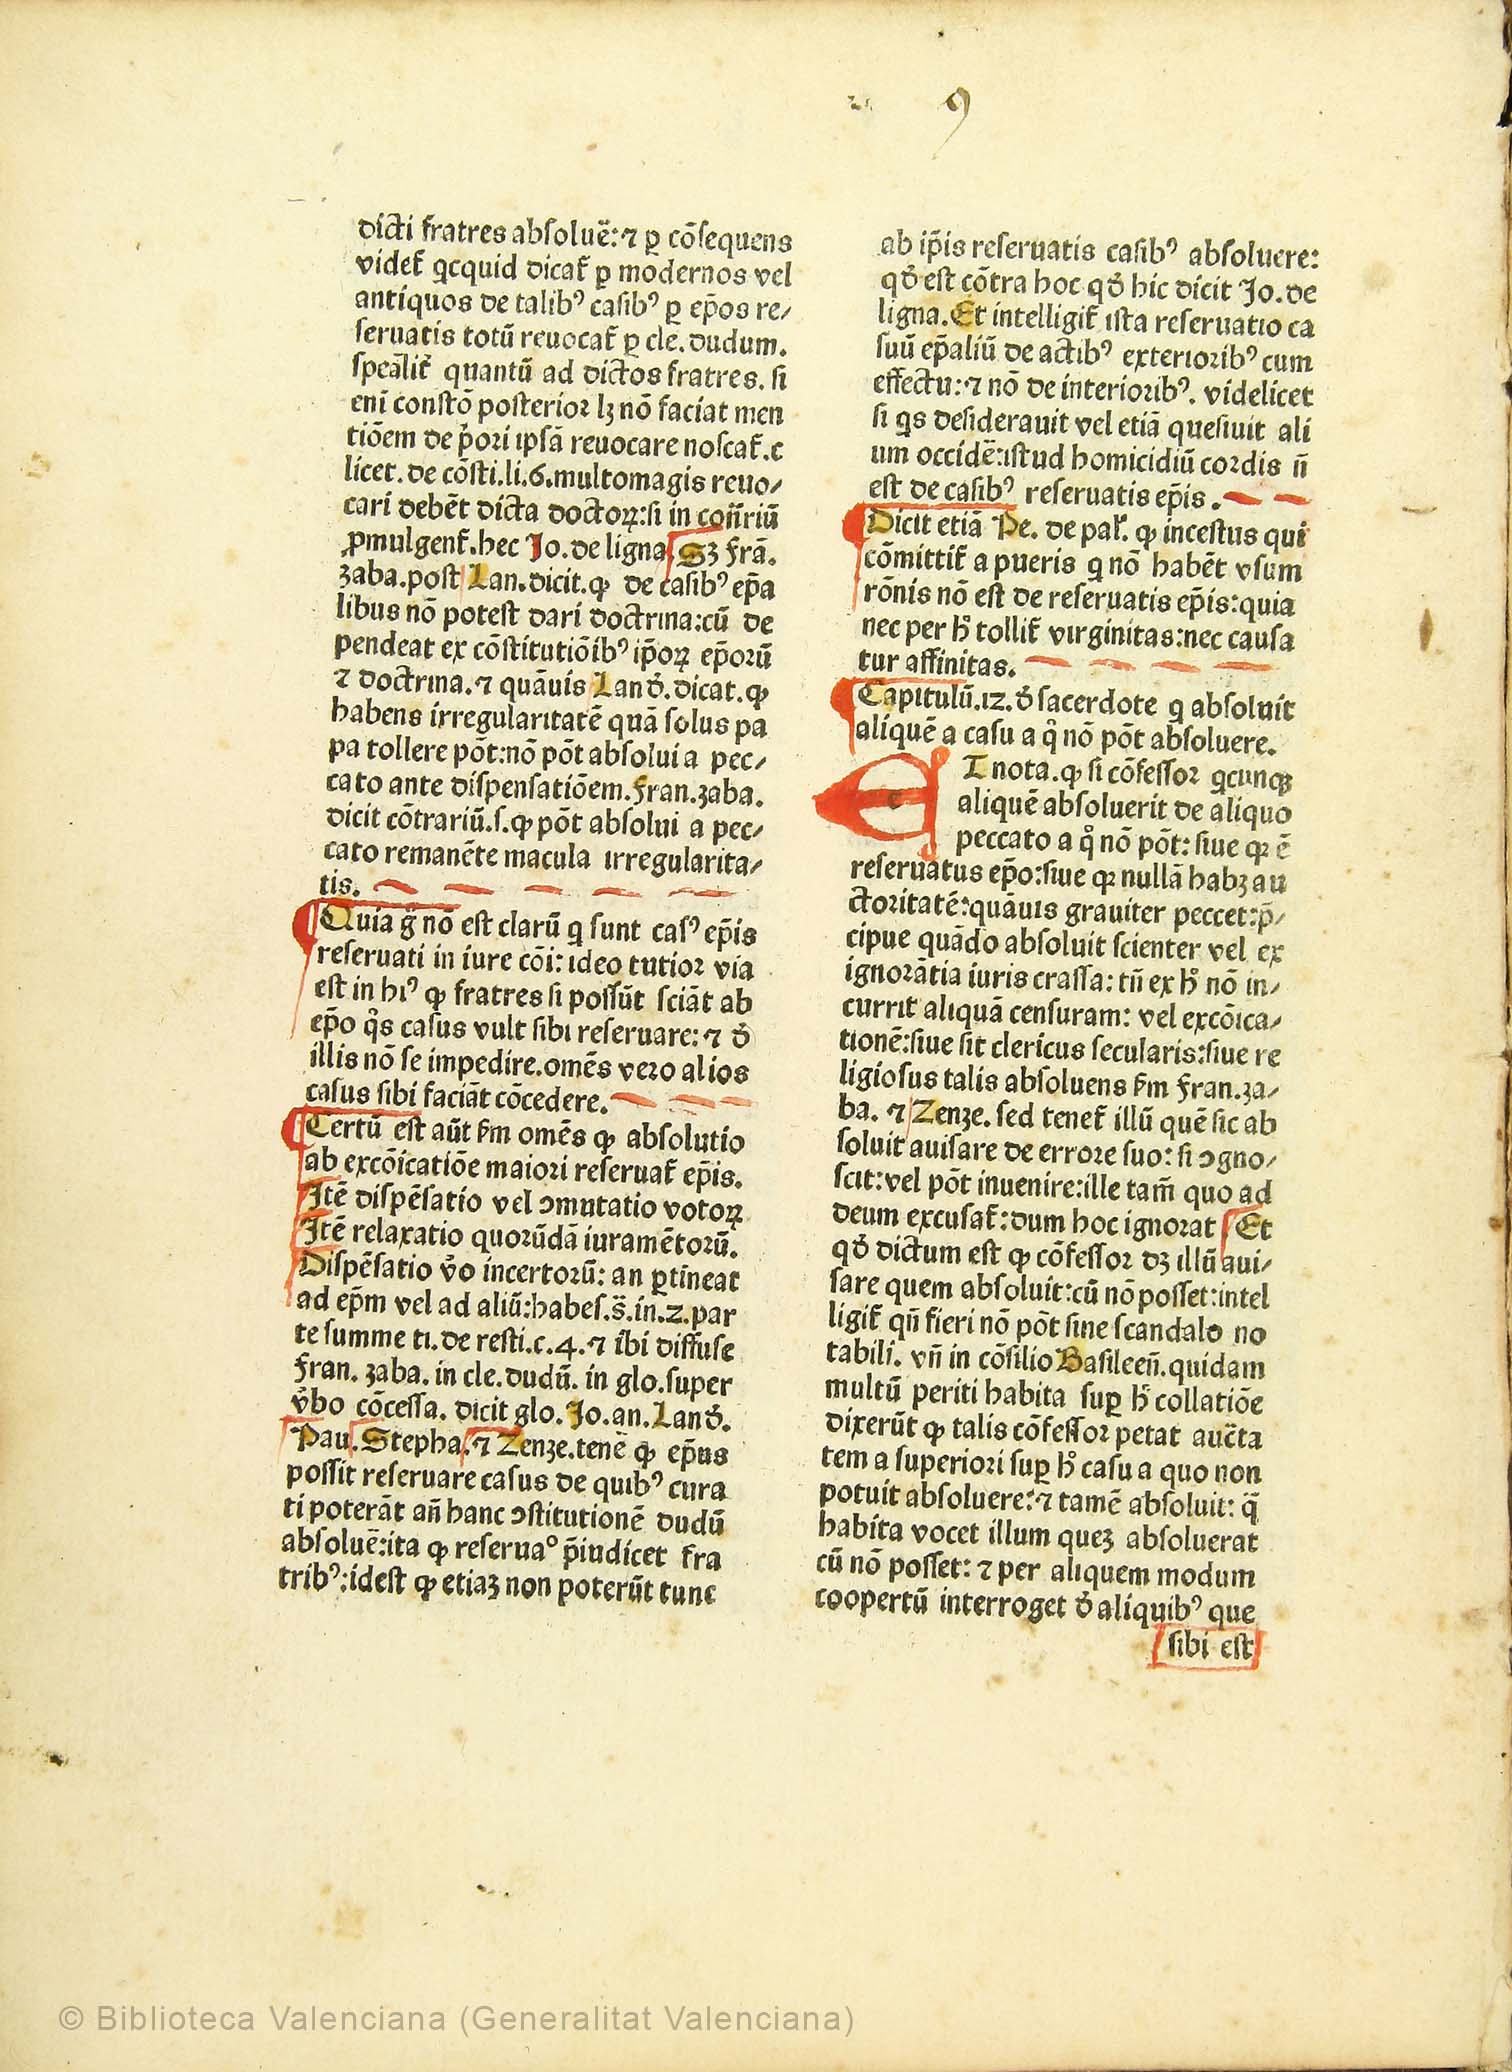 9
dicti fratres absoluẽ: ⁊ ꝑ cõsequens
videt̃ qͥcquid dicat̃ ꝑ modernos vel
antiquos de talibꝰ casibꝰ ꝑ ep̃os re/
seruatis totũ reuocat̃ ꝑ cle. dudum.
speãlit̃ quantũ ad dictos fratres. si
eni cõstõ posterior lꝫ nõ faciat men
tiõem de p̃ori ipsã reuocare noscat̃. c
licet. de cõsti. li. 6. multomagis reuo/
cari debẽt dicta doctoꝝ: si in cõñriũ
ꝓmulgent̃. hec Jo. de ligna. Sꝫ frã.
ʒaba. post Lan. dicit. ꝙ de casibꝰ ep̃a
libus nõ potest dari doctrina: cũ de
pendeat ex cõstitutiõibꝰ ip̃oꝝ ep̃orũ
⁊ doctrina. ⁊ quãuis Land̃. dicat. ꝙ
habens irregularitatẽ quã solus pa
pa tollere põt: nõ põt absolui a pec/
cato ante dispensatiõem. fran. ʒaba.
dicit cõtrariũ. s. ꝙ põt absolui a pec/
cato remanẽte macula irregularita/
tis.
Quia g̃ nõ est clarũ q̃ sunt casꝰ ep̃is
reseruati in iure cõi: ideo tutior via
est in hiꝰ ꝙ fratres si possũt sciãt ab
ep̃o qͦs casus vult sibi reseruare: ⁊ d̃
illis nõ se impedire. omẽs vero alios
casus sibi faciãt cõcedere.
Certũ est aũt ẜm omẽs ꝙ absolutio
ab excõicatiõe maiori reseruat̃ ep̃is.
Jtẽ dispẽsatio vel ↄmutatio votoꝝ
Jtẽ relaxatio quorũdã iuramẽtorũ.
Dispẽsatio ṽo incertorũ: an ꝑtineat
ad ep̃m vel ad aliũ: habes. s̃. in. 2. par
te summe ti. de resti. c. 4. ⁊ ibi diffuse
fran. ʒaba. in cle. dudũ. in glo. super
ṽbo cõcessa. dicit glo. Jo. an. Land̃.
Pau. Stepha. ⁊ Zenʒe. tenẽ ꝙ ep̃us
possit reseruare casus de quibꝰ cura
ti poterãt añ hanc ↄstitutionẽ dudũ
absoluẽ: ita ꝙ reseruaº p̃iudicet fra
tribꝰ: idest ꝙ etiaꝫ non poterũt tunc
ab ip̃is reseruatis casibꝰ absoluere:
qd̃ est cõtra hoc qd̃ hic dicit Jo. de
ligna. Et intelligit̃ ista reseruatio ca
suũ ep̃aliũ de actibꝰ exterioribꝰ cum
effectu: ⁊ nõ de interioribꝰ. videlicet
si qͥs desiderauit vel etiã quesiuit ali
um occidẽ: istud homicidiũ cordis ñ
est de casibꝰ reseruatis ep̃is.
Dicit etiã Pe. de pal̃. ꝙ incestus qui
cõmittit̃ a pueris qͥ nõ habẽt vsum
rõnis nõ est de reseruatis ep̃is: quia
nec per hͦ tollit̃ virginitas: nec causa
tur affinitas.
Capitulũ. 12. d̃ sacerdote qͥ absoluit
aliquẽ a casu a qͦ nõ põt absoluere.
ET nota. ꝙ si cõfessor qͥcunqꝫ
aliquẽ absoluerit de aliquo
peccato a qͦ nõ põt: siue qꝛ ẽ
reseruatus ep̃o: siue qꝛ nullã habꝫ au
ctoritatẽ: quãuis grauiter peccet: p̃/
cipue quãdo absoluit scienter vel ex
ignorãtia iuris crassa: tñ ex hͦ nõ in/
currit aliquã censuram: vel excõica/
tionẽ: siue sit clericus secularis: siue re
ligiosus talis absoluens ẜm fran. ʒa/
ba. ⁊ Zenʒe. sed tenet̃ illũ quẽ sic ab
soluit auisare de errore suo: si ↄgno/
scit: vel põt inuenire: ille tam̃ quo ad
deum excusat̃: dum hoc ignorat Et
qd̃ dictum est ꝙ cõfessor dꝫ illũ aui/
sare quem absoluit: cũ nõ posset: intel
ligit̃ qñ fieri nõ põt sine scandalo no
tabili. vñ in cõsilio Basileeñ. quidam
multũ periti habita suꝑ hͦ collatiõe
dixerũt ꝙ talis cõfessor petat auẽta
tem a superiori suꝑ hͦ casu a quo non
potuit absoluere: ⁊ tamẽ absoluit: q̃
habita vocet illum queꝫ absoluerat
cũ nõ posset: ⁊ per aliquem modum
coopertũ interroget d̃ aliquibꝰ que
sibi est
© Biblioteca Valenciana (Generalitat Valenciana)